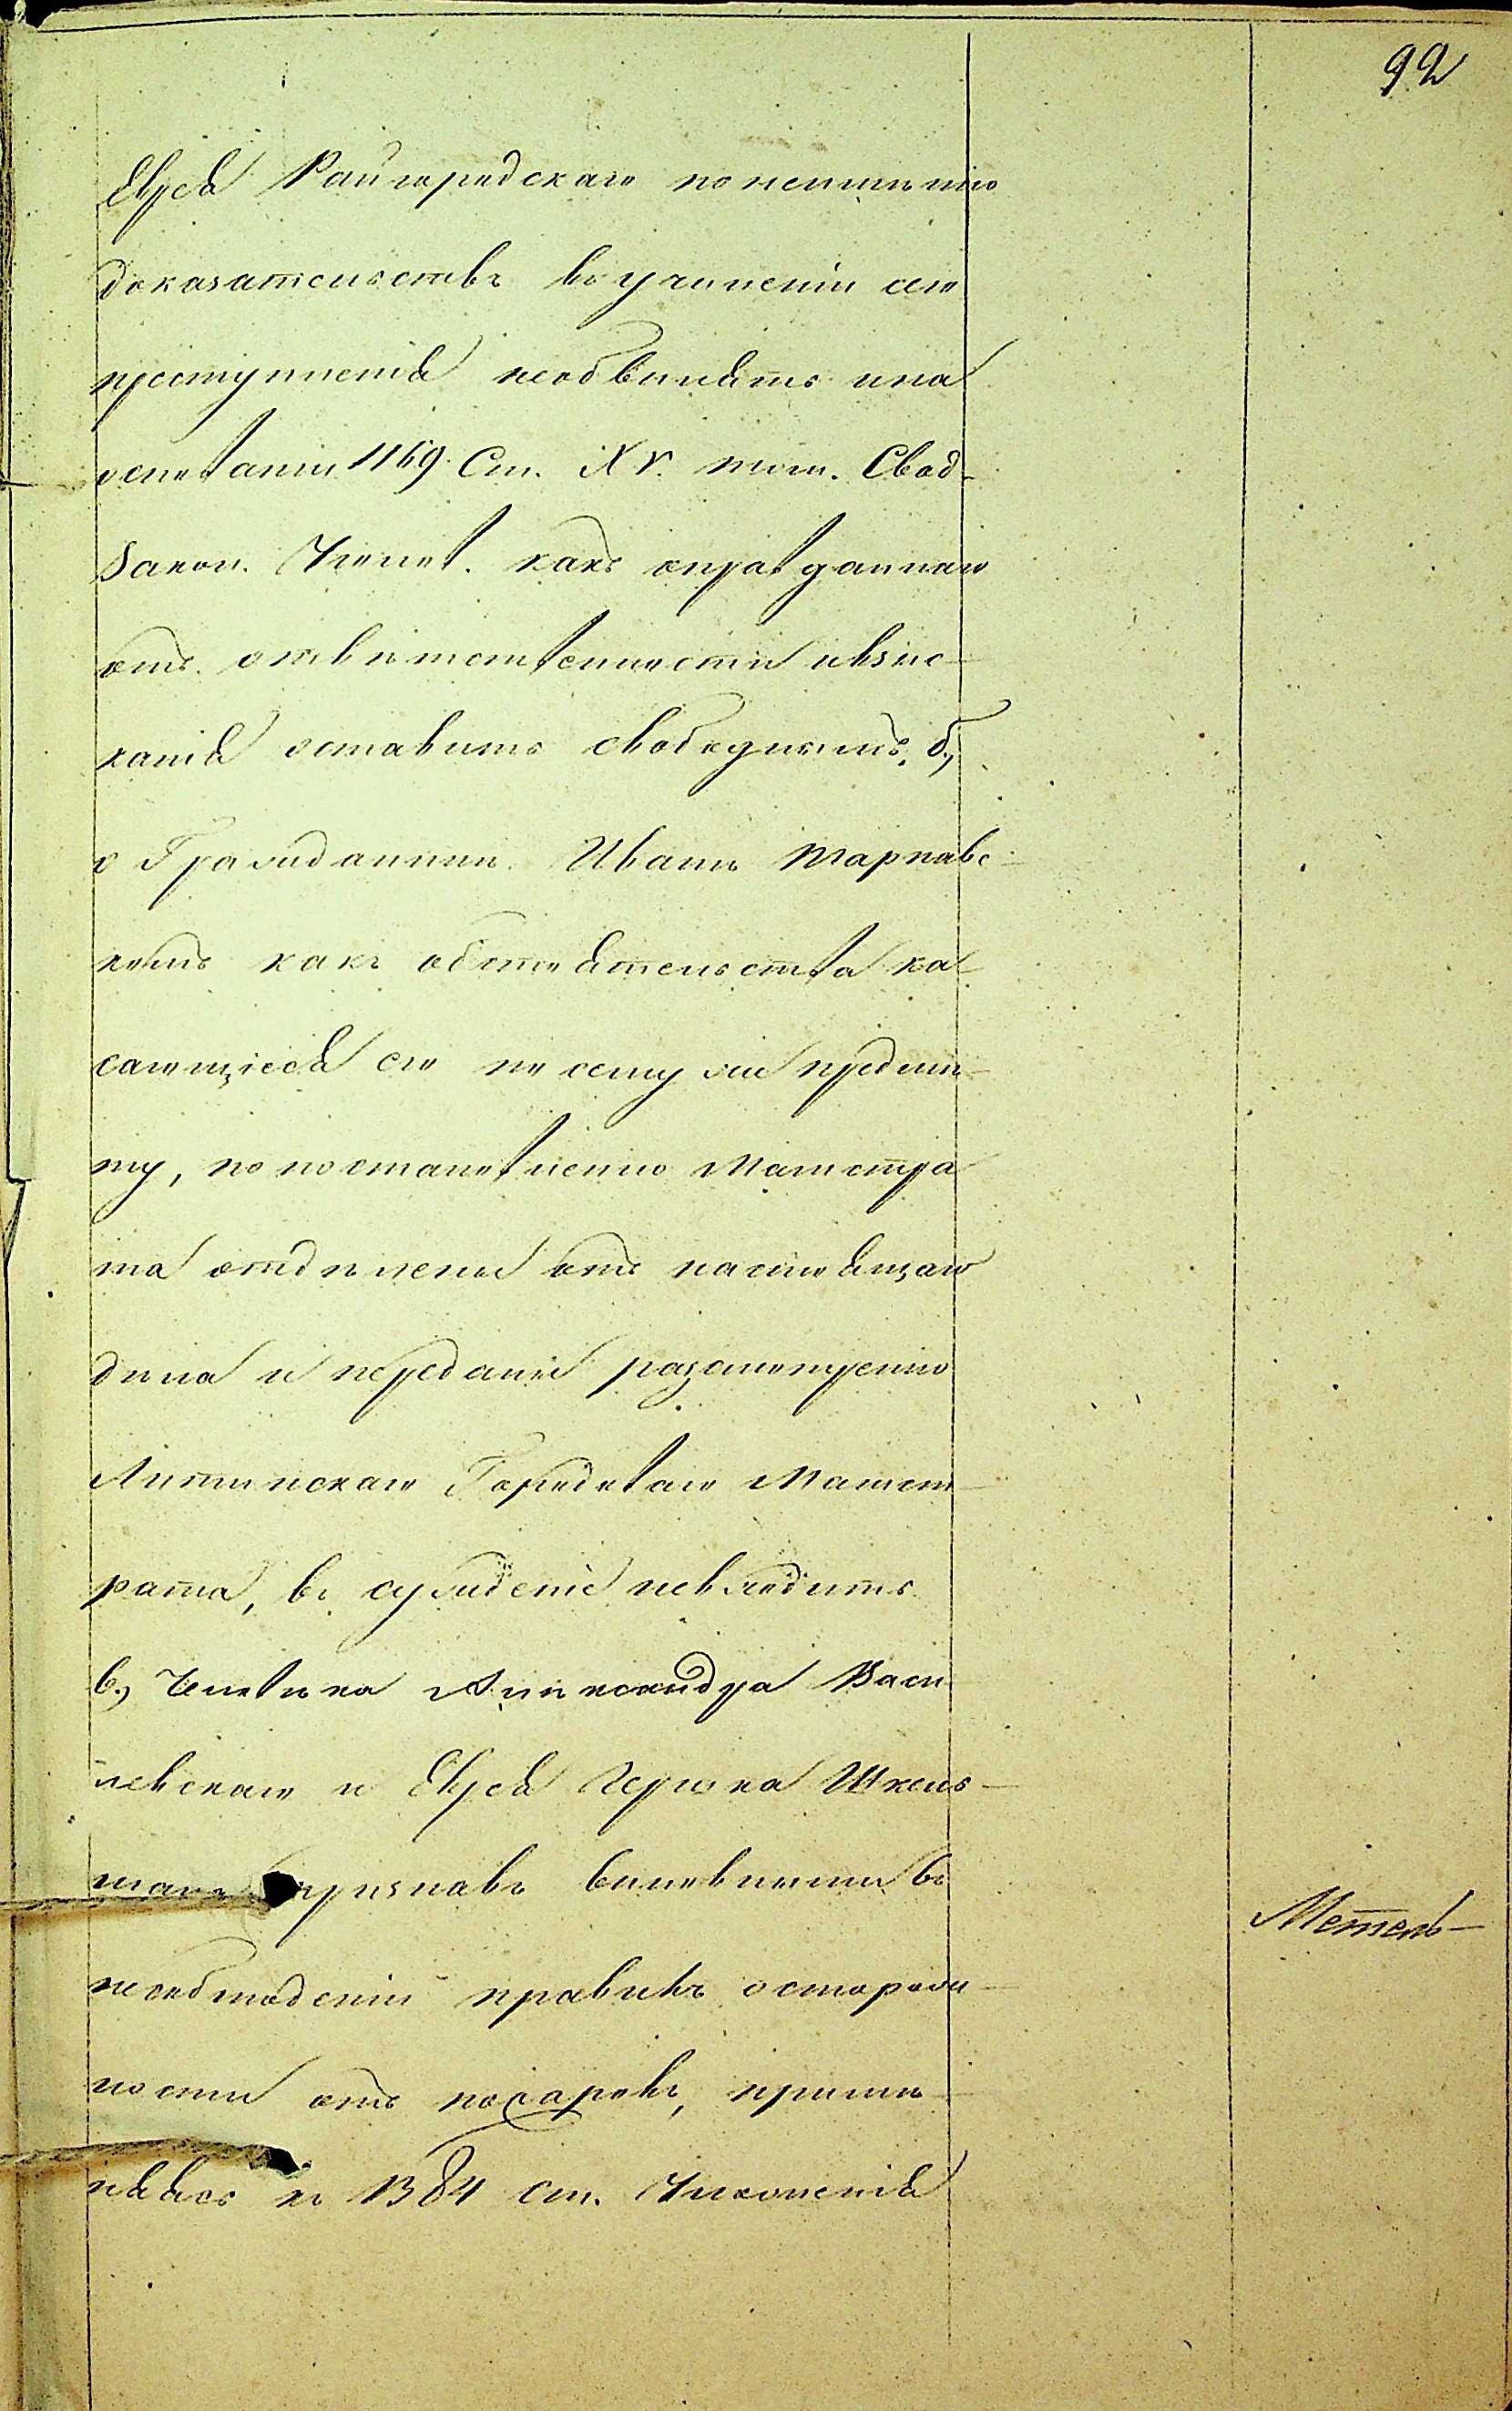 92
Еврея Райгородскаго понеимѣнію
доказательствъ въ учиненіи сего
преступленія необвинять и на
основаніи 1169 Ст. XV. том. Свод.
Закон. Уголов. какъ оправданнаго
отъ отвѣтственности и взыс-
канія оставить свободнымъ, б.,
о Гражданинѣ Иванѣ Тарнавс-
комъ какъ обстоятельства ка-
сающіеся его по сему же предмѣ-
ту, по постановленію Магистра-
та отдѣлены отъ настоящаго
дѣла и переданы разсмотренію
Литинскаго Городоваго Магист-
рата, въ сужденіе невходить
в., Человѣка Алѣксандра Васи-
левскаго и Еврея Гершка Шкель-
признавъ виновными въ
несоблюденіи правилъ осторож-
ности отъ пожаровъ, примѣ-
няясь къ 1384 ст. Уложенія
Метель-